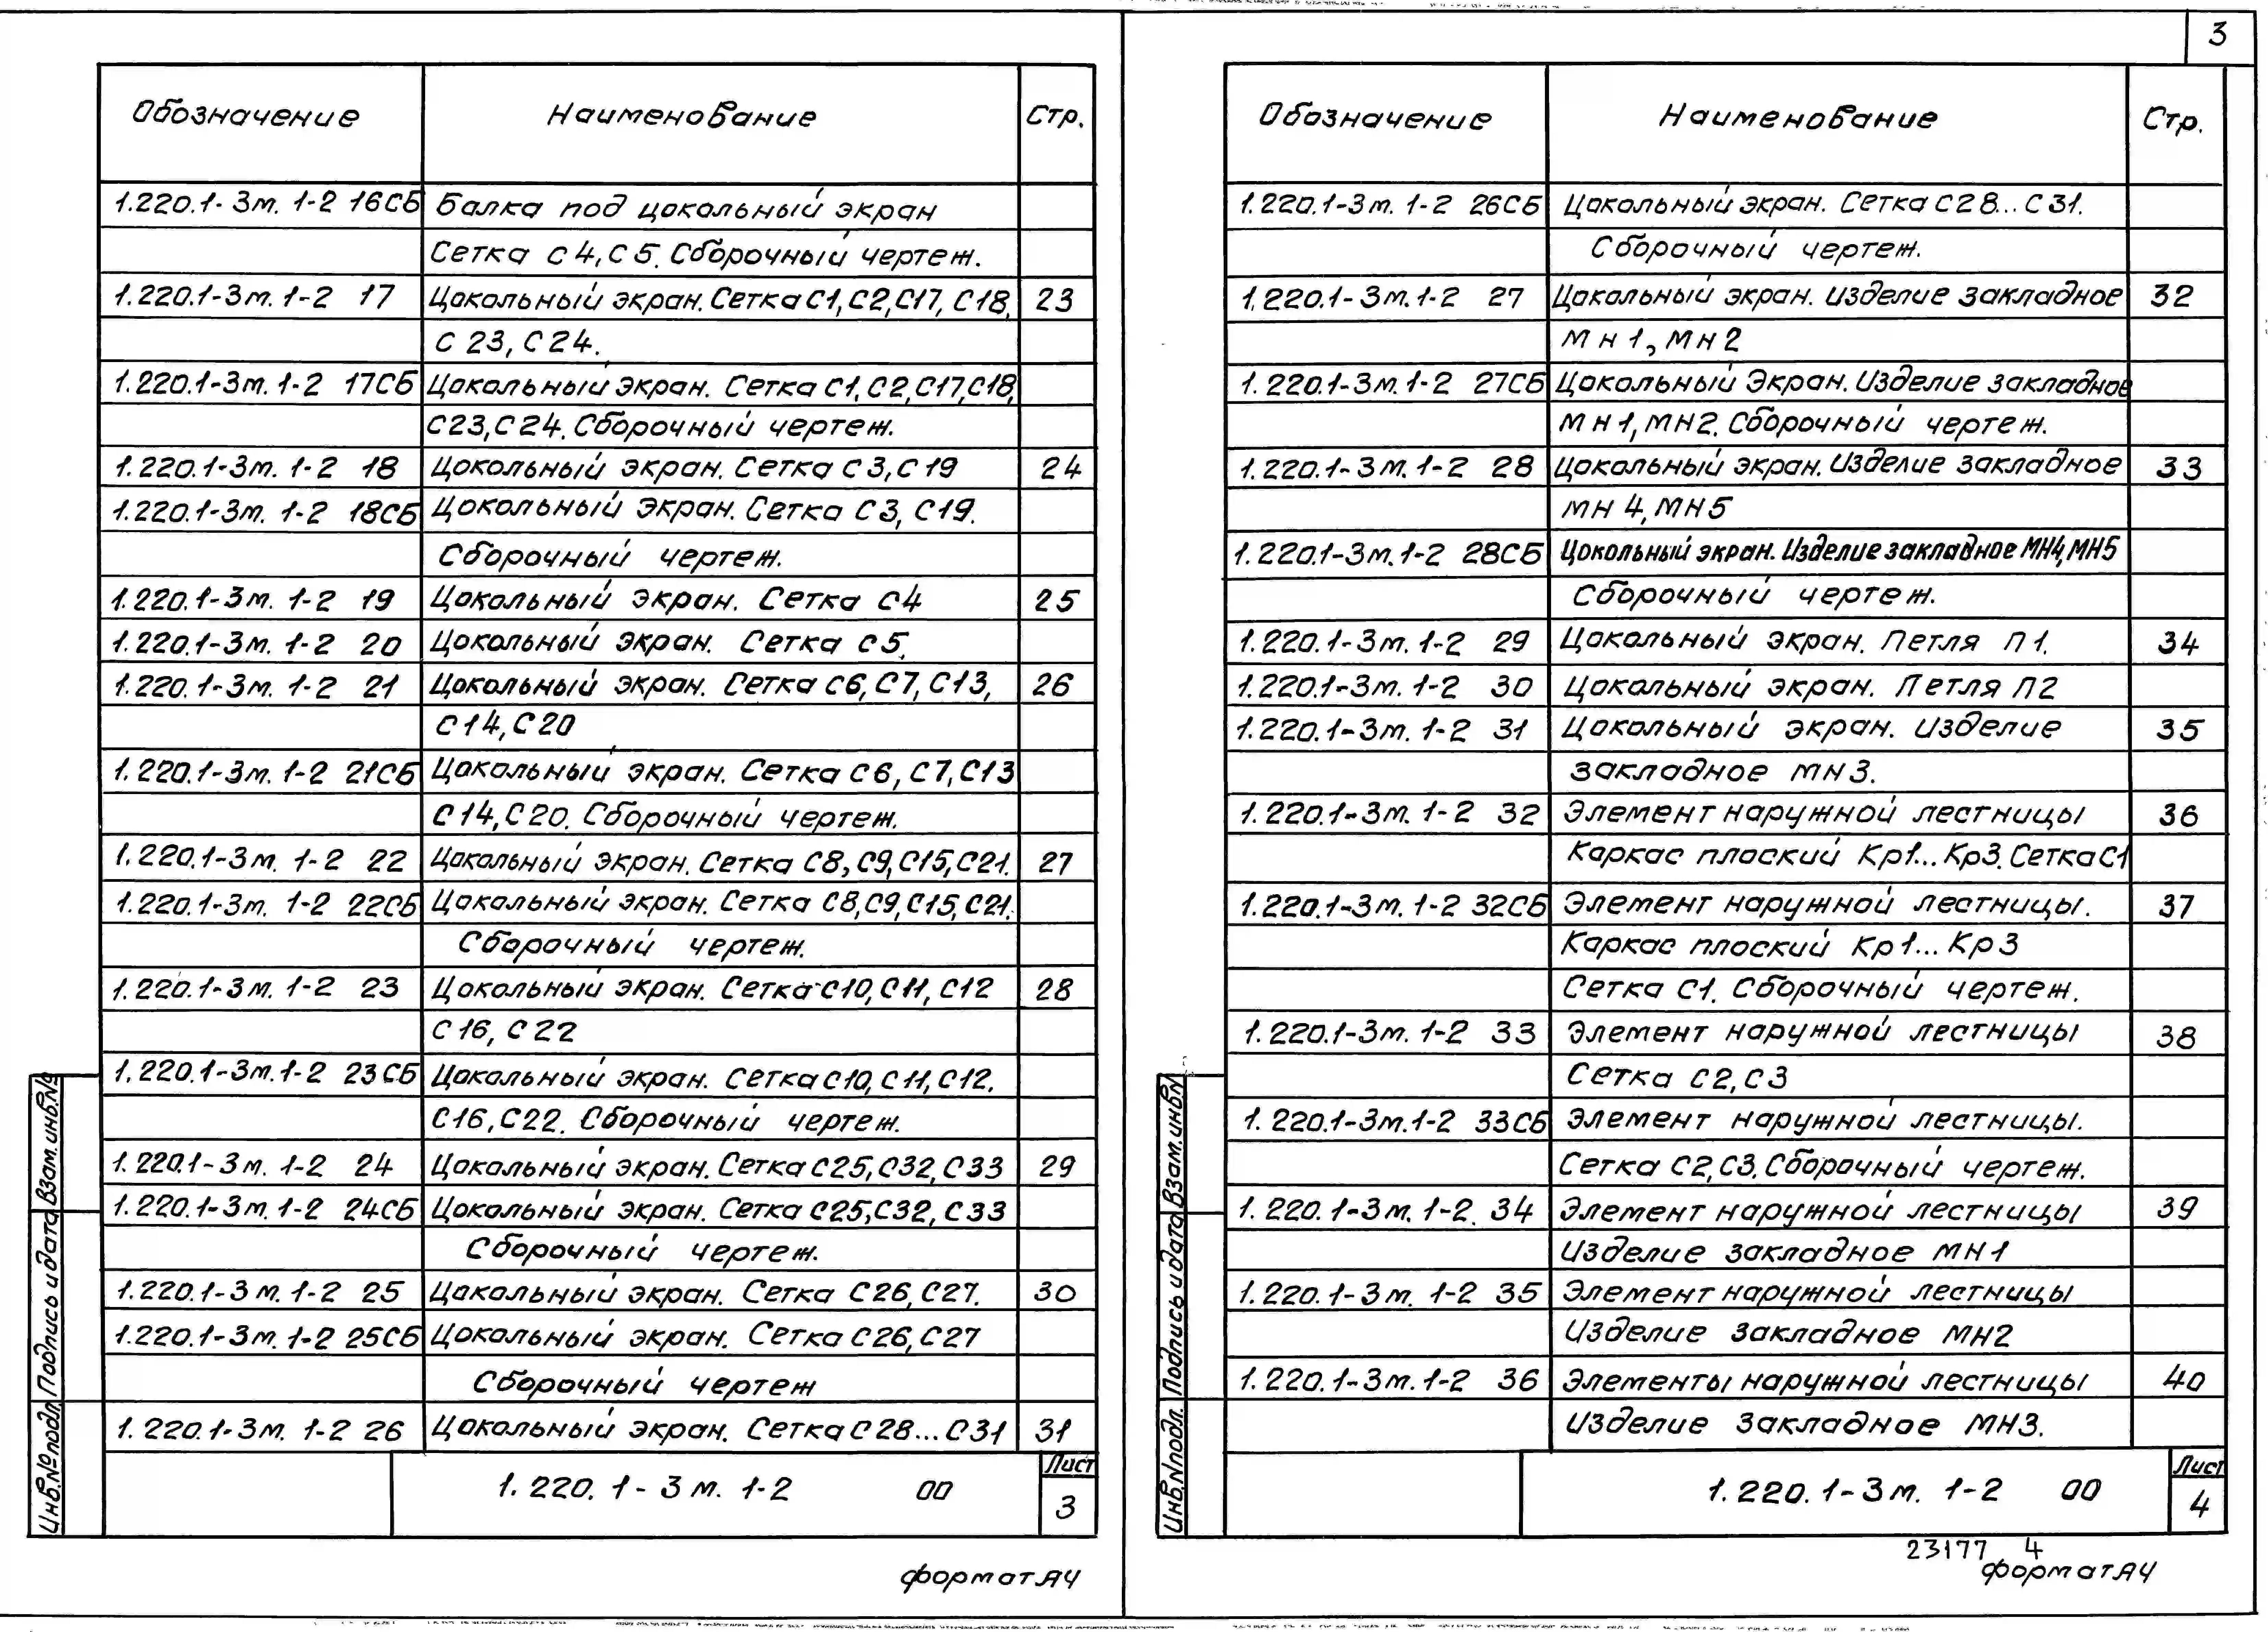 Обозначение Наименование Стр.
1.220.1-3м. 1-2 16СБ Балка под цокольный экран
Сетка С4, С5. Сборочный чертеж.
1.220.1-3м. 1-2 17 Цокольный экран. Сетка С1, С2, С17, С18, 23
С23, С24.
1.220.1-3м. 1-2 17СБ Цокольный экран. Сетка С1, С2, С17, С18,
С23, С24. Сборочный чертеж.
1.220.1-3м. 1-2 18 Цокольный экран. Сетка С3, С19 24
1.220.1-3м. 1-2 18СБ Цокольный экран. Сетка С3, С19.
Сборочный чертеж.
1.220.1-3м. 1-2 19 Цокольный экран. Сетка С4 25
1.220.1-3м. 1-2 20 Цокольный экран. Сетка С5.
1.220.1-3м. 1-2 21 Цокольный экран. Сетка С6, С7, С13, 26
С14, С20
1.220.1-3м. 1-2 21СБ Цокольный экран. Сетка С6, С7, С13
С14, С20. Сборочный чертеж.
1.220.1-3м. 1-2 22 Цокольный экран. Сетка С8, С9, С15, С21. 27
1.220.1-3м. 1-2 22СБ Цокольный экран. Сетка С8, С9, С15, С21.
Сборочный чертеж.
1.220.1-3м. 1-2 23 Цокольный экран. Сетка С10, С11, С12 28
С16, С22
1.220.1-3м. 1-2 23СБ Цокольный экран. Сетка С10, С11, С12.
С16, С22. Сборочный чертеж.
1.220.1-3м. 1-2 24 Цокольный экран. Сетка С25, С32, С33 29
1.220.1-3м. 1-2 24СБ Цокольный экран. Сетка С25, С32, С33
Сборочный чертеж.
1.220.1-3м. 1-2 25 Цокольный экран. Сетка С26, С27. 30
1.220.1-3м. 1-2 25СБ Цокольный экран. Сетка С26, С27
Сборочный чертеж
1.220.1-3м. 1-2 26 Цокольный экран. Сетка С28...С31 31
Взам. инв. №
Подпись и дата
Инв. № подл.
1.220.1-3м. 1-2 00
Лист
3
формат А4
3
Обозначение Наименование Стр.
1.220.1-3м. 1-2 26СБ Цокольный экран. Сетка С28...С31.
Сборочный чертеж.
1.220.1-3м. 1-2 27 Цокольный экран. Изделие закладное 32
Мн1, Мн2
1.220.1-3м. 1-2 27СБ Цокольный Экран. Изделие закладное
МН1, МН2. Сборочный чертеж.
1.220.1-3м. 1-2 28 Цокольный экран. Изделие закладное 33
МН4, МН5
1.220.1-3м. 1-2 28СБ Цокольный экран. Изделие закладное МН4, МН5
Сборочный чертеж.
1.220.1-3м. 1-2 29 Цокольный экран. Петля П1. 34
1.220.1-3м. 1-2 30 Цокольный экран. Петля П2
1.220.1-3м. 1-2 31 Цокольный экран. Изделие 35
закладное МН3.
1.220.1-3м. 1-2 32 Элемент наружной лестницы 36
Каркас плоский Кр1...Кр3. Сетка С1
1.220.1-3м. 1-2 32СБ Элемент наружной лестницы. 37
Каркас плоский Кр1...Кр3
Сетка С1. Сборочный чертеж.
1.220.1-3м. 1-2 33 Элемент наружной лестницы 38
Сетка С2, С3
1.220.1-3м. 1-2 33СБ Элемент наружной лестницы.
Сетка С2, С3. Сборочный чертеж.
1.220.1-3м. 1-2. 34 Элемент наружной лестницы 39
Изделие закладное МН1
1.220.1-3м. 1-2 35 Элемент наружной лестницы
Изделие закладное МН2
1.220.1-3м. 1-2 36 Элементы наружной лестницы 40
Изделие закладное МН3.
Взам. инв. N
Подпись и дата
Инв. N подл.
1.220.1-3м. 1-2 00
Лист
4
23177 4
формат А4